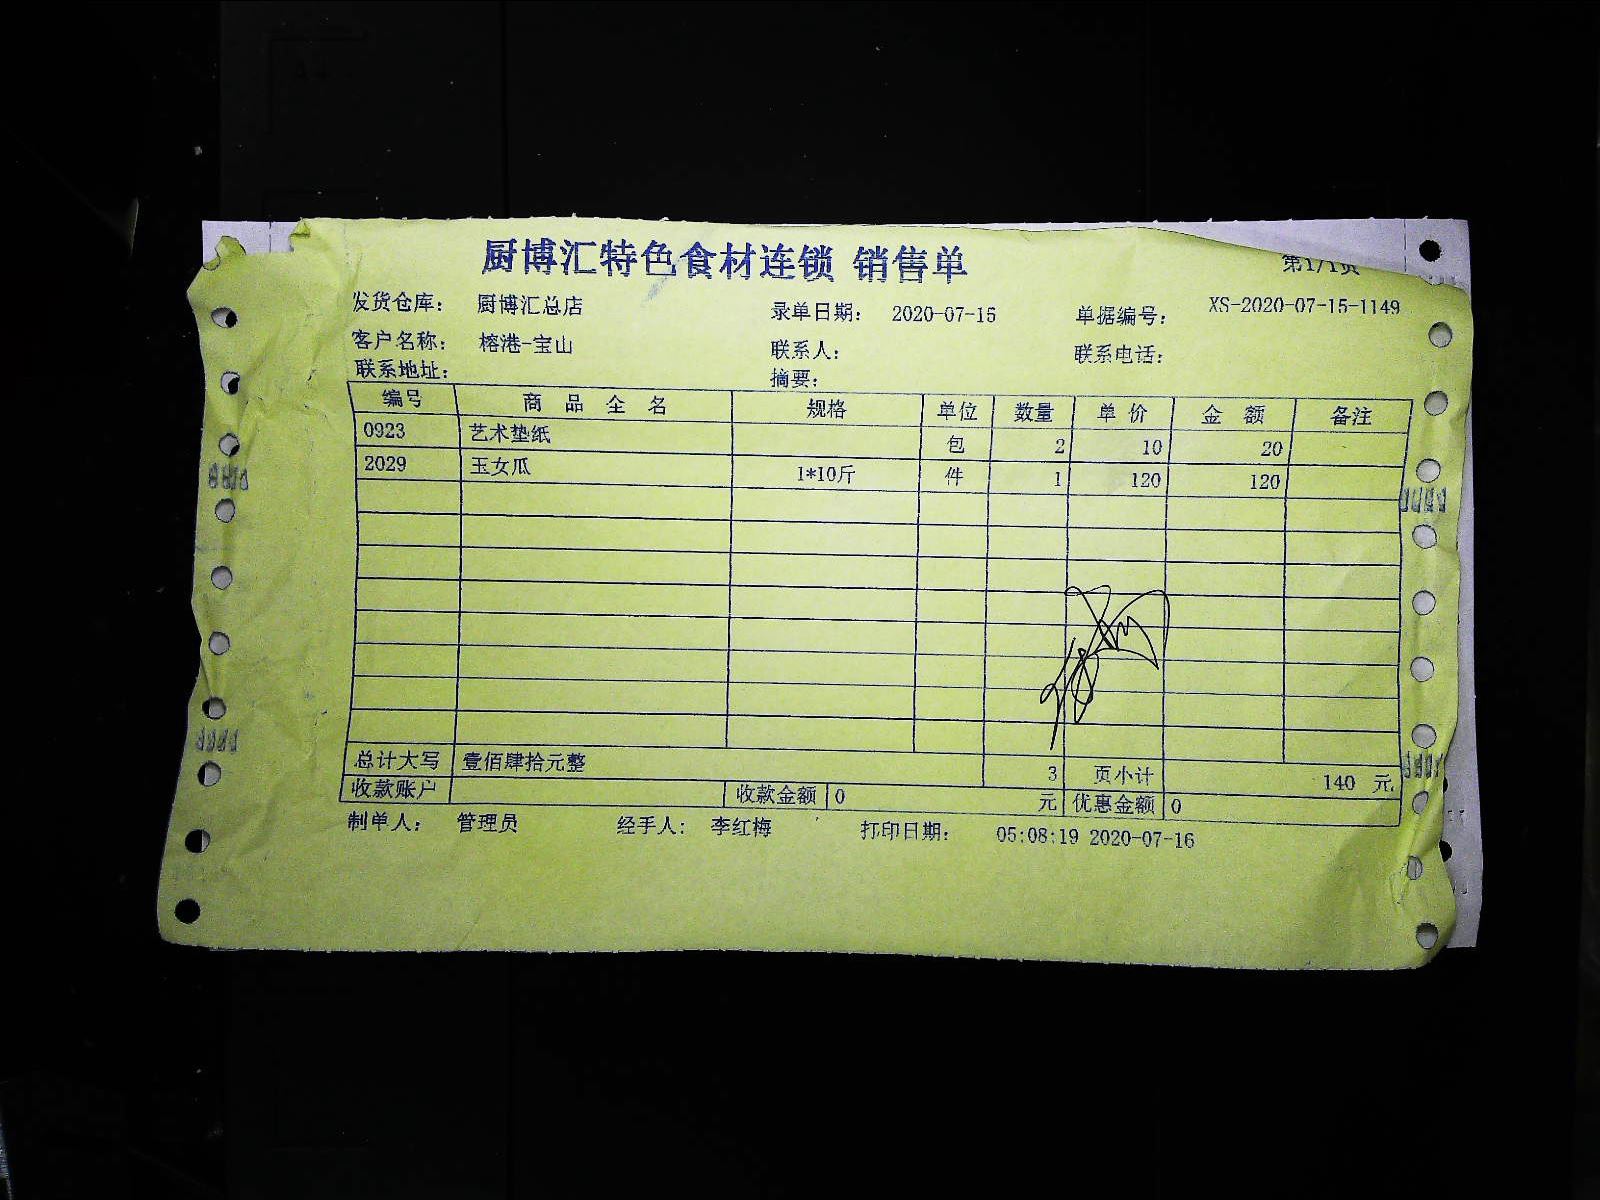 厨博汇特色食材连锁 销售单
第1/1页
发货仓库： 厨博汇总店 录单日期： 2020-07-15 单据编号： XS-2020-07-15-1149
客户名称： 榕港-宝山 联系人： 联系电话：
联系地址： 摘要：
编号 商 品 全 名 规格 单位 数量 单 价 金 额 备注
0923 艺术垫纸 包 2 10 20
2029 玉女瓜 1*10斤 件 1 120 120
总计大写 壹佰肆拾元整 3 页小计 140 元
收款账户 收款金额 0 元 优惠金额 0
制单人： 管理员 经手人： 李红梅 打印日期： 05:08:19 2020-07-16